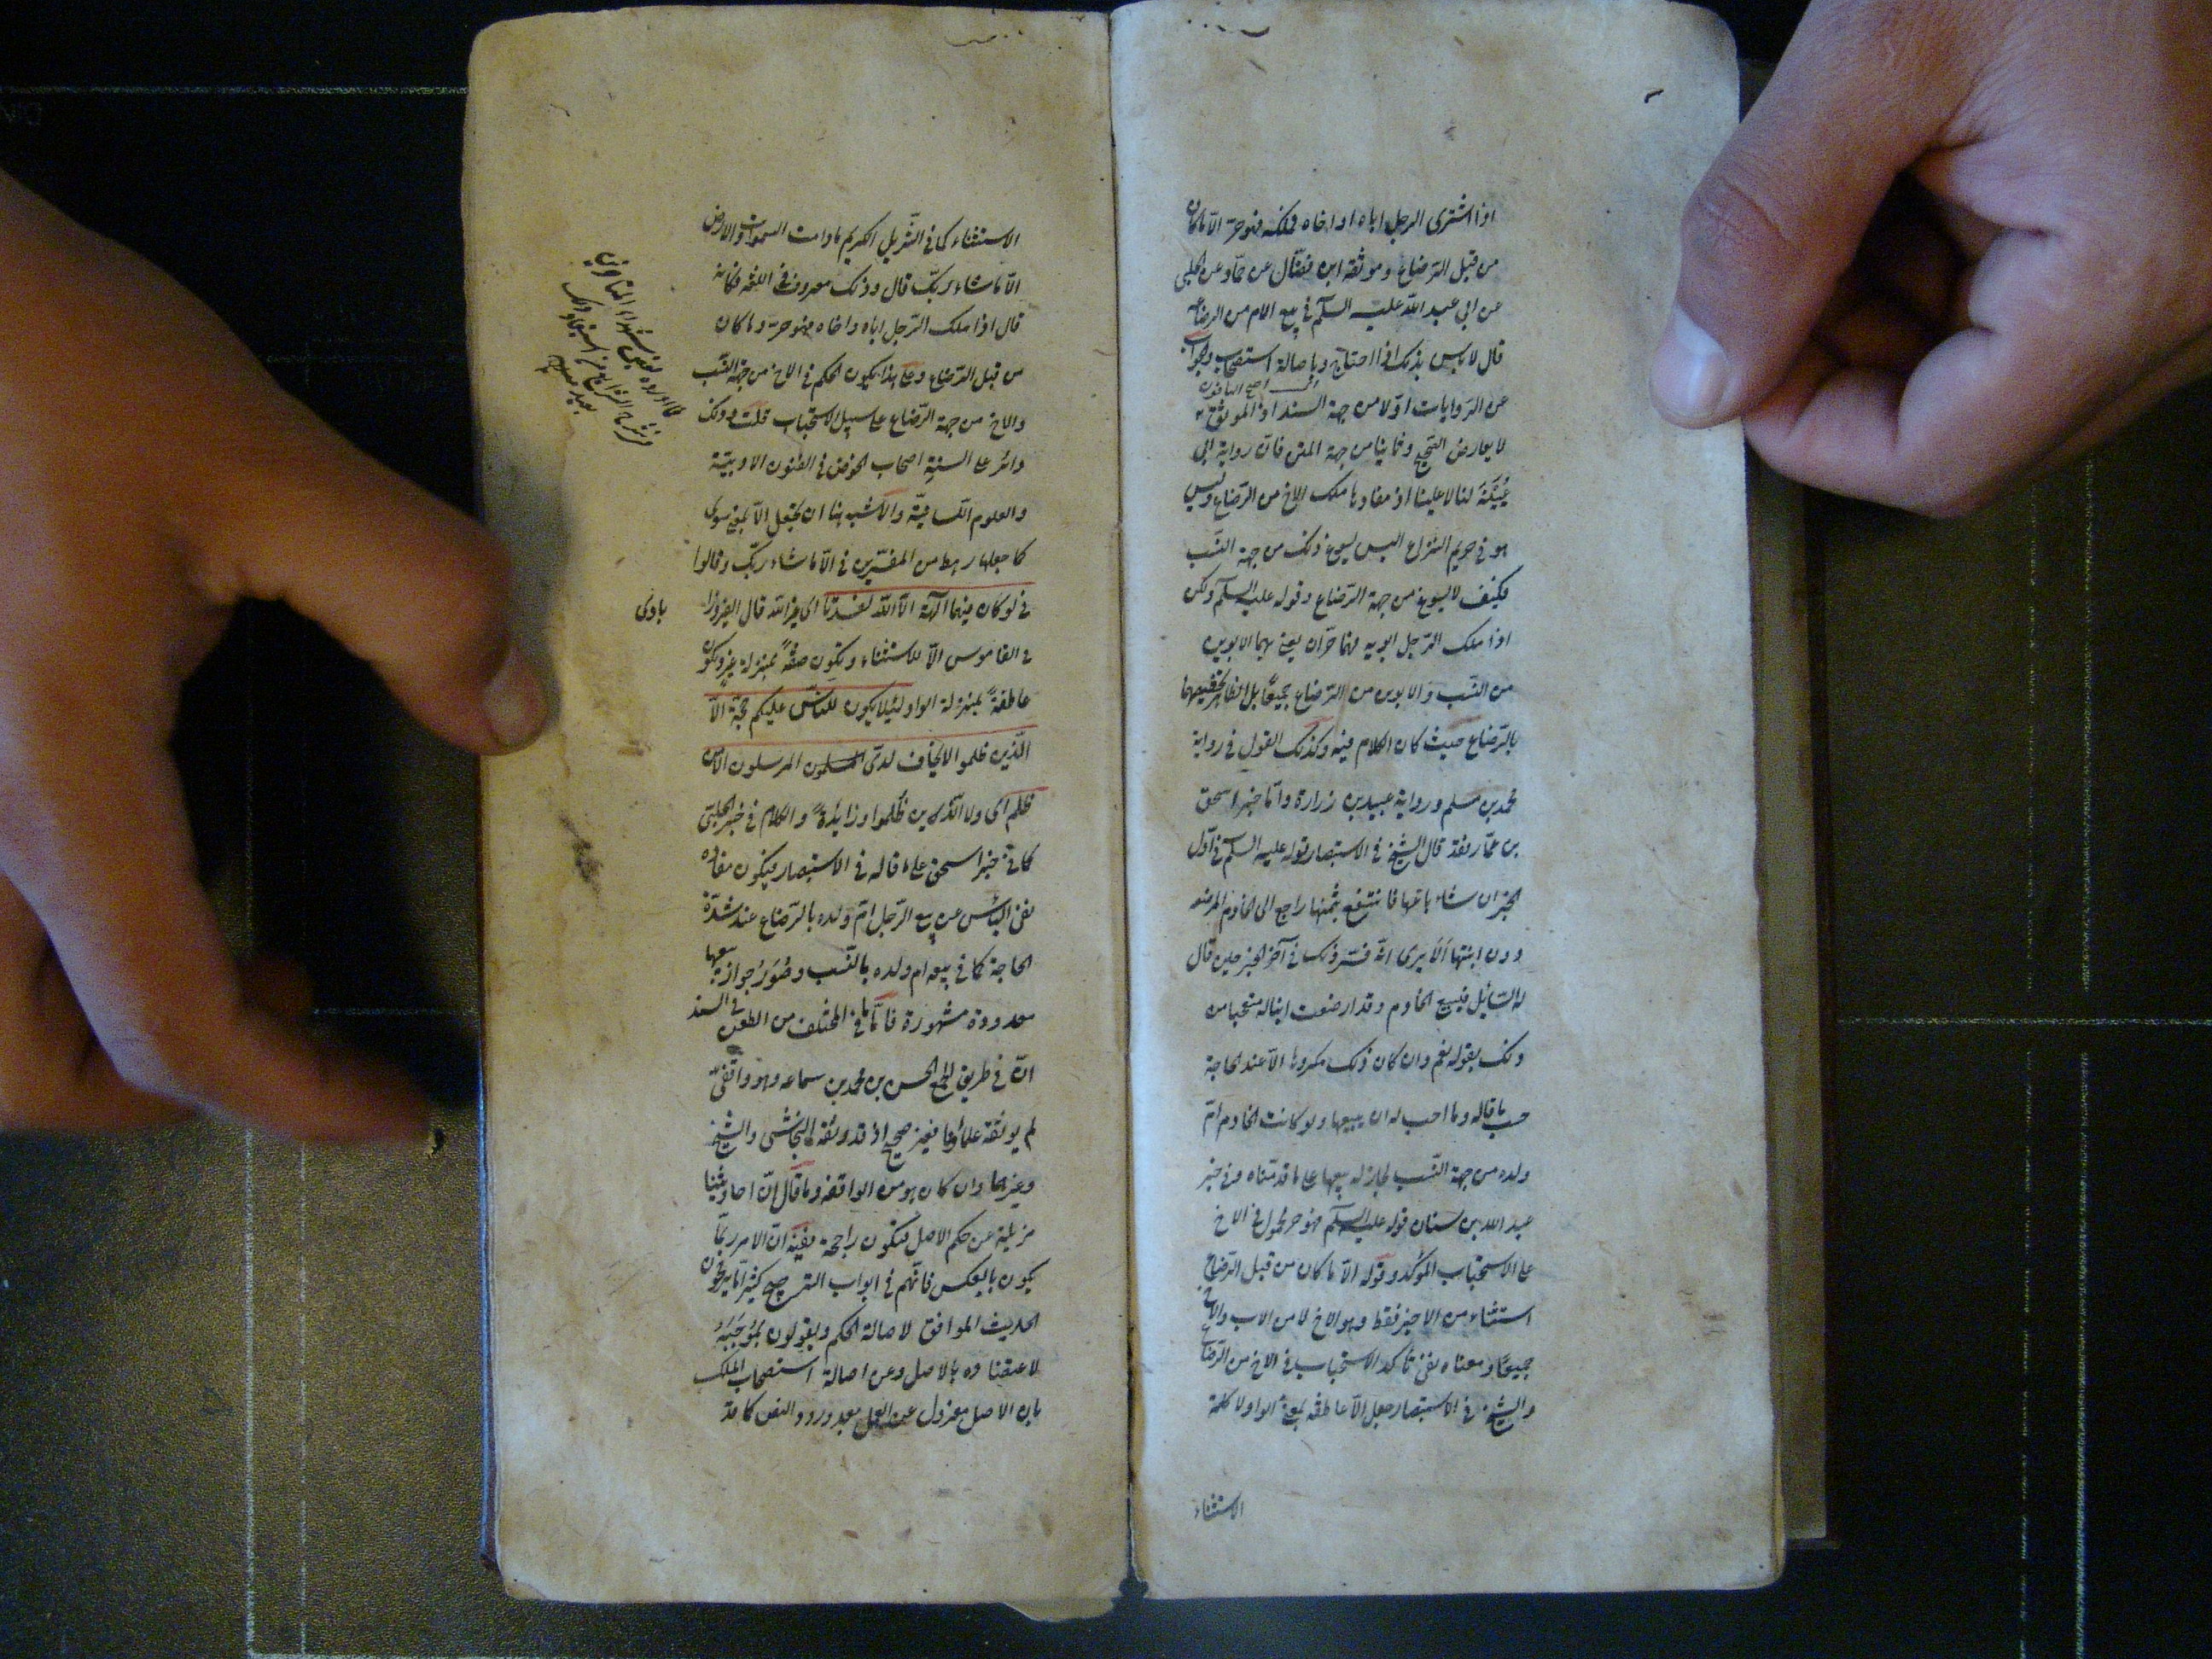 اذا اشترى الرجل اباه او اخاه فملكه فهو حر الا ما كان
من قبل الرضاع وموثقة ابن فضال عن حماد عن الحلبى
عن ابى عبد الله عليه السلم فى بيع الام من الرضاعة
قال لا باس بذلك اذا احتاج وباصالة استصحاب والجواب
عن الروايات اولا من جهة السند اذ الموثق
لا يعارض الصحيح وثانيا من جهة المتن فان رواية ابى
عيينة لنا لا علينا اذ مفادها ملك الاخ من الرضاع وليس
هو فى حريم النزاع اليس يسوغ ذلك من جهة النسب
فكيف لا يسوغ من جهة الرضاع وقوله عليه السلم ولكن
اذا ملك الرجل ابويه فهما حران يعنى بهما الابوين
من النسب والابوين من الرضاع جميعا بل الظاهر تخصيصهما
بالرضاع حيث كان الكلام فيه وكذلك القول فى رواية
محمد بن مسلم ورواية عبيد بن زرارة واما خبر اسحق
بن عمار فقد قال الشيخ فى الاستبصار قوله عليه السلم فى اول
الخبر ان شاء باعها فانتفع بثمنها راجع الى الخادم المرضعه
دون ابنتها الا يرى انه فسر ذلك فى آخر الخبر حين قال
له السائل فيبيع الخادم وقد ارضعت ابنا له متعجبا من
ذلك بقوله نعم وان كان ذلك مكروها الا عند الحاجة
حسب ما قاله وما احب له ان يبيعها ولو كانت الخادم ام
ولده من جهة النسب لجاز له بيعها على ما قدمناه وفى خبر
عبد الله بن سنان قوله عليه السلم فهو حر محمول فى الاخ
على الاستحباب المؤكد وقوله الا ما كان من قبل الرضاع
استثناء من الاخير فقط وهو الاخ لا من الاب والاخ
جميعا ومعناه نفى تاكد الاستحباب فى الاخ من الرضاع
والشيخ فى الاستبصار جعل الا عاطفة بمعنى الواو لا كلمة
الاستثناء
الاستثناء كما فى التنزيل الكريم ما دامت السموات والارض
الا ما شاء ربك قال وذلك معروف فى اللغة فكانه
قال اذا ملك الرجل اباه واخاه فهو حر وما كان
من قبل الرضاع وعلى هذا يكون الحكم فى الاخ من جهة النسب
والاخ من جهة الرضاع على سبيل الاستحباب قلت وذلك
دائر على السنة اصحاب الخوض فى الفنون الادبية
والعلوم اللسانية والاشبه هنا ان تجعل الا بمعنى سوى
كما جعلها رهط من المفسرين فى الا ما شاء ربك وقالوا
فى لو كان فيهما آلهة الا الله لفسدتا اى غير الله قال الفيروزا
بادى
فى القاموس الا للاستثناء وتكون صفة بمنزلة غير وتكون
عاطفة بمنزلة الواو لئلا يكون للناس عليكم حجة الا
الذين ظلموا لا يخاف لدى المرسلون الا من
ظلم اى ولا الذين ظلموا وزايدة والكلام فى خبر الحلبى
كما فى خبر اسحق على ما قاله فى الاستبصار فيكون مفاده
نفى الباس عن بيع الرجل ام ولده بالرضاع عند شدة
الحاجة كما فى بيعه ام ولده بالنسب وصور جواز بيعها
معدودة مشهورة فاما ما فى المختلف من الطعن فى السند
ان فى طريق الجمع الحسن بن محمد بن سماعه وهو واقفى
لم يوثقه علماؤنا فغير صحيح اذ قد وثقه النجاشى والشيخ
وغيرهما وان كان هو من الواقفه وما قال ان احاديثنا
مزيلة عن حكم الاصل فتكون راجحة ففيه ان الامر ربما
يكون بالعكس فانهم فى ابواب الترجيح كثيرا ما يرجحون
الحديث الموافق لاصالة الحكم ويقولون بموجبه
لاعتضاده بالاصل وعن اصالة استصحاب الملك
بان الاصل معزول عن العمل بعد ورود النص كما قد